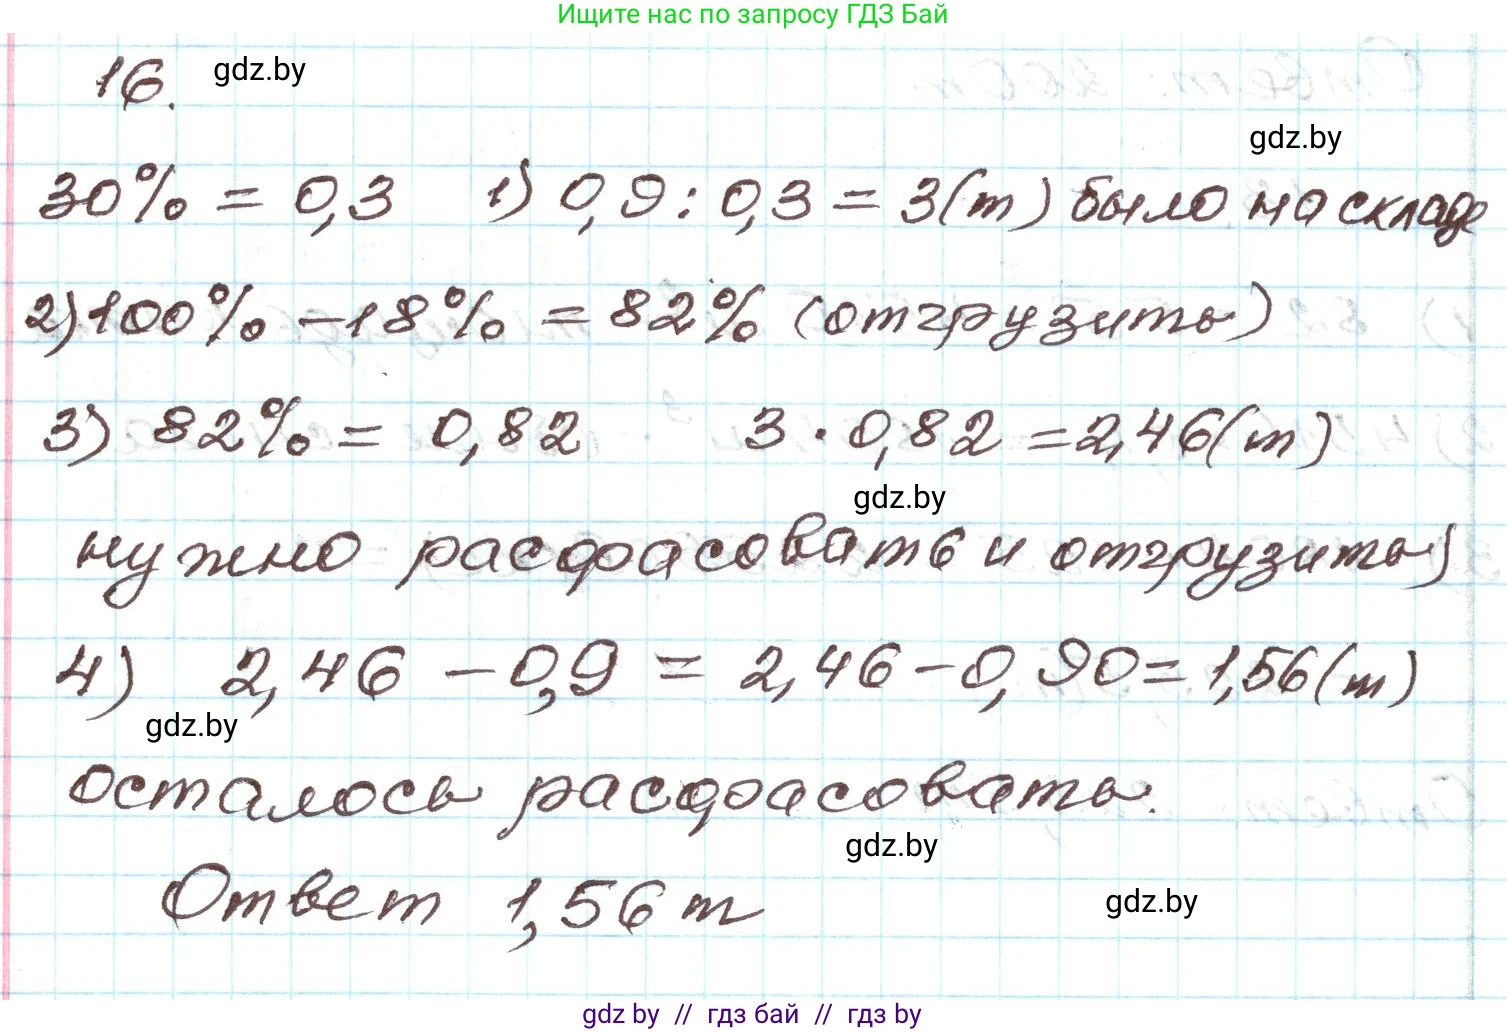 Ищите нас по запросу ГДЗ Бай
16. gdz.by
gdz.by
30% = 0,3 1) 0,9 : 0,3 = 3(т) было на складе
2) 100% - 18% = 82% (отгрузить)
3) 82% = 0,82 3 · 0,82 = 2,46(т)
gdz.by
нужно расфасовать и отгрузить)
4) 2,46 - 0,9 = 2,46 - 0,90 = 1,56(т)
gdz.by
осталось расфасовать.
gdz.by
Ответ 1,56 т
gdz.by
gdz by // гдз бай // гдз by